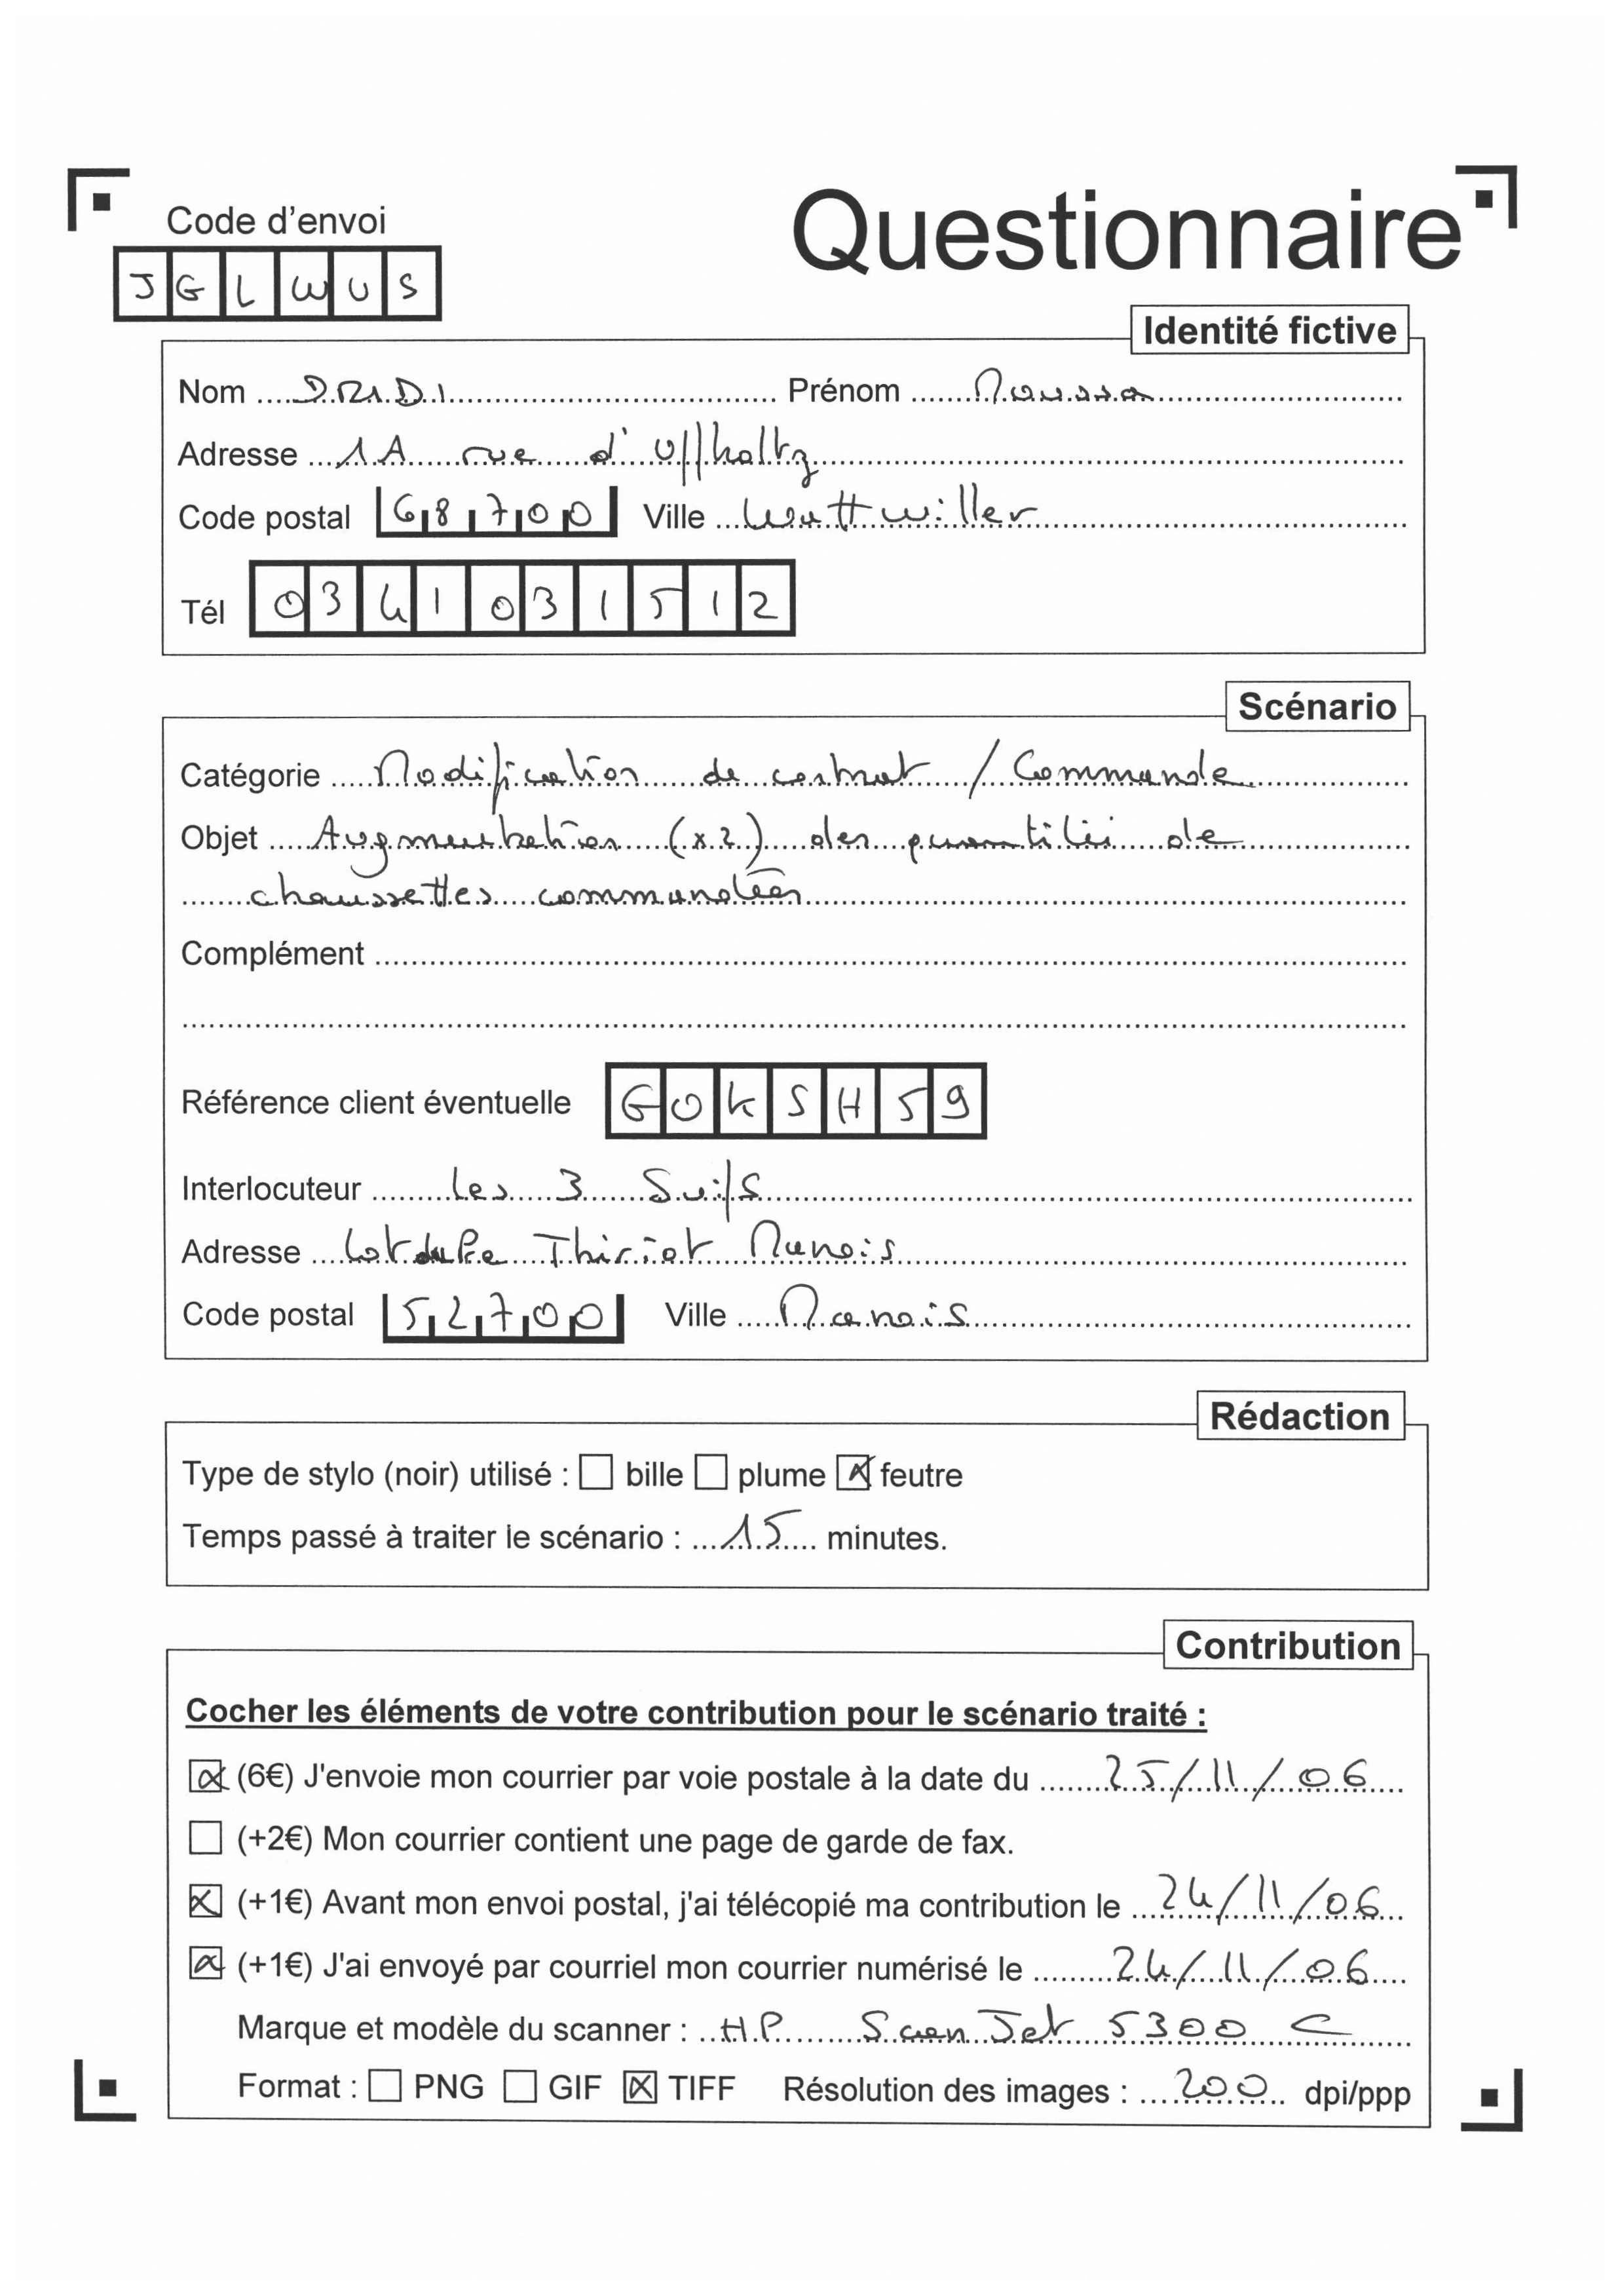 Questionnaire
Code d'envoi
JGLWUS
Identité fictive
Nom DRIDI Prénom Moussa
Adresse 1A rue d'Uffholtz
Code postal 68700 Ville Wattwiller
Tél 0341031512
Scénario
Catégorie Modification de contrat / Commande
Objet Augmentation (x2) des quantités de
chaussettes commandées
Complément
Référence client éventuelle GOKSH59
Interlocuteur Les 3 Suifs
Adresse Thiriot Manois
Code postal 52700 Ville Manois
Rédaction
Type de stylo (noir) utilisé : bille plume feutre
Temps passé à traiter le scénario : 15 minutes.
Contribution
Cocher les éléments de votre contribution pour le scénario traité :
(6€) J'envoie mon courrier par voie postale à la date du 25/11/06
(+2€) Mon courrier contient une page de garde de fax.
(+1€) Avant mon envoi postal, j'ai télécopié ma contribution le 24/11/06
(+1€) J'ai envoyé par courriel mon courrier numérisé le 24/11/06
Marque et modèle du scanner : HP ScanJet 5300 C
Format : PNG GIF TIFF Résolution des images : 200 dpi/ppp